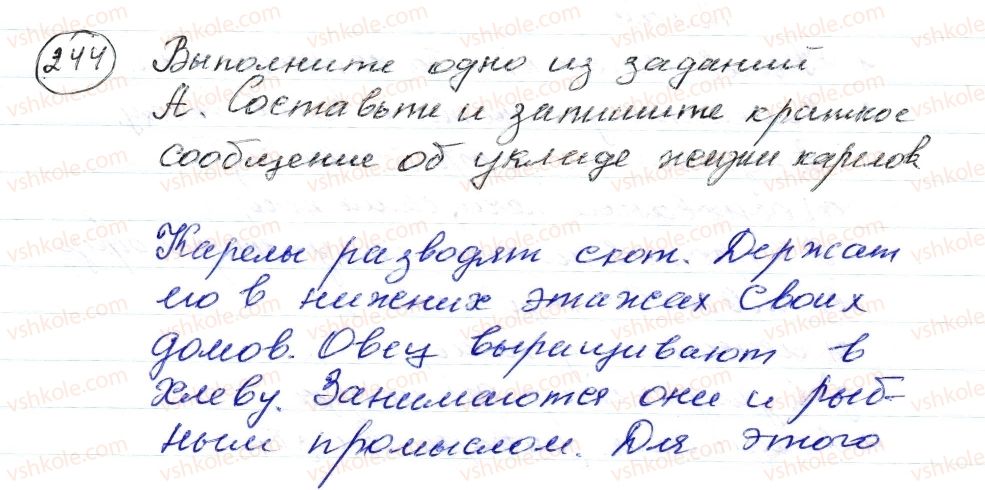 244 Выполните одно из заданий
А. Составьте и запишите краткое
сообщение об укладе жизни карелов
Карелы разводят скот. Держат
его в нижних этажах своих
домов. Овец выращивают в
хлеву. Занимаются они и рыб-
ным промыслом. Для этого